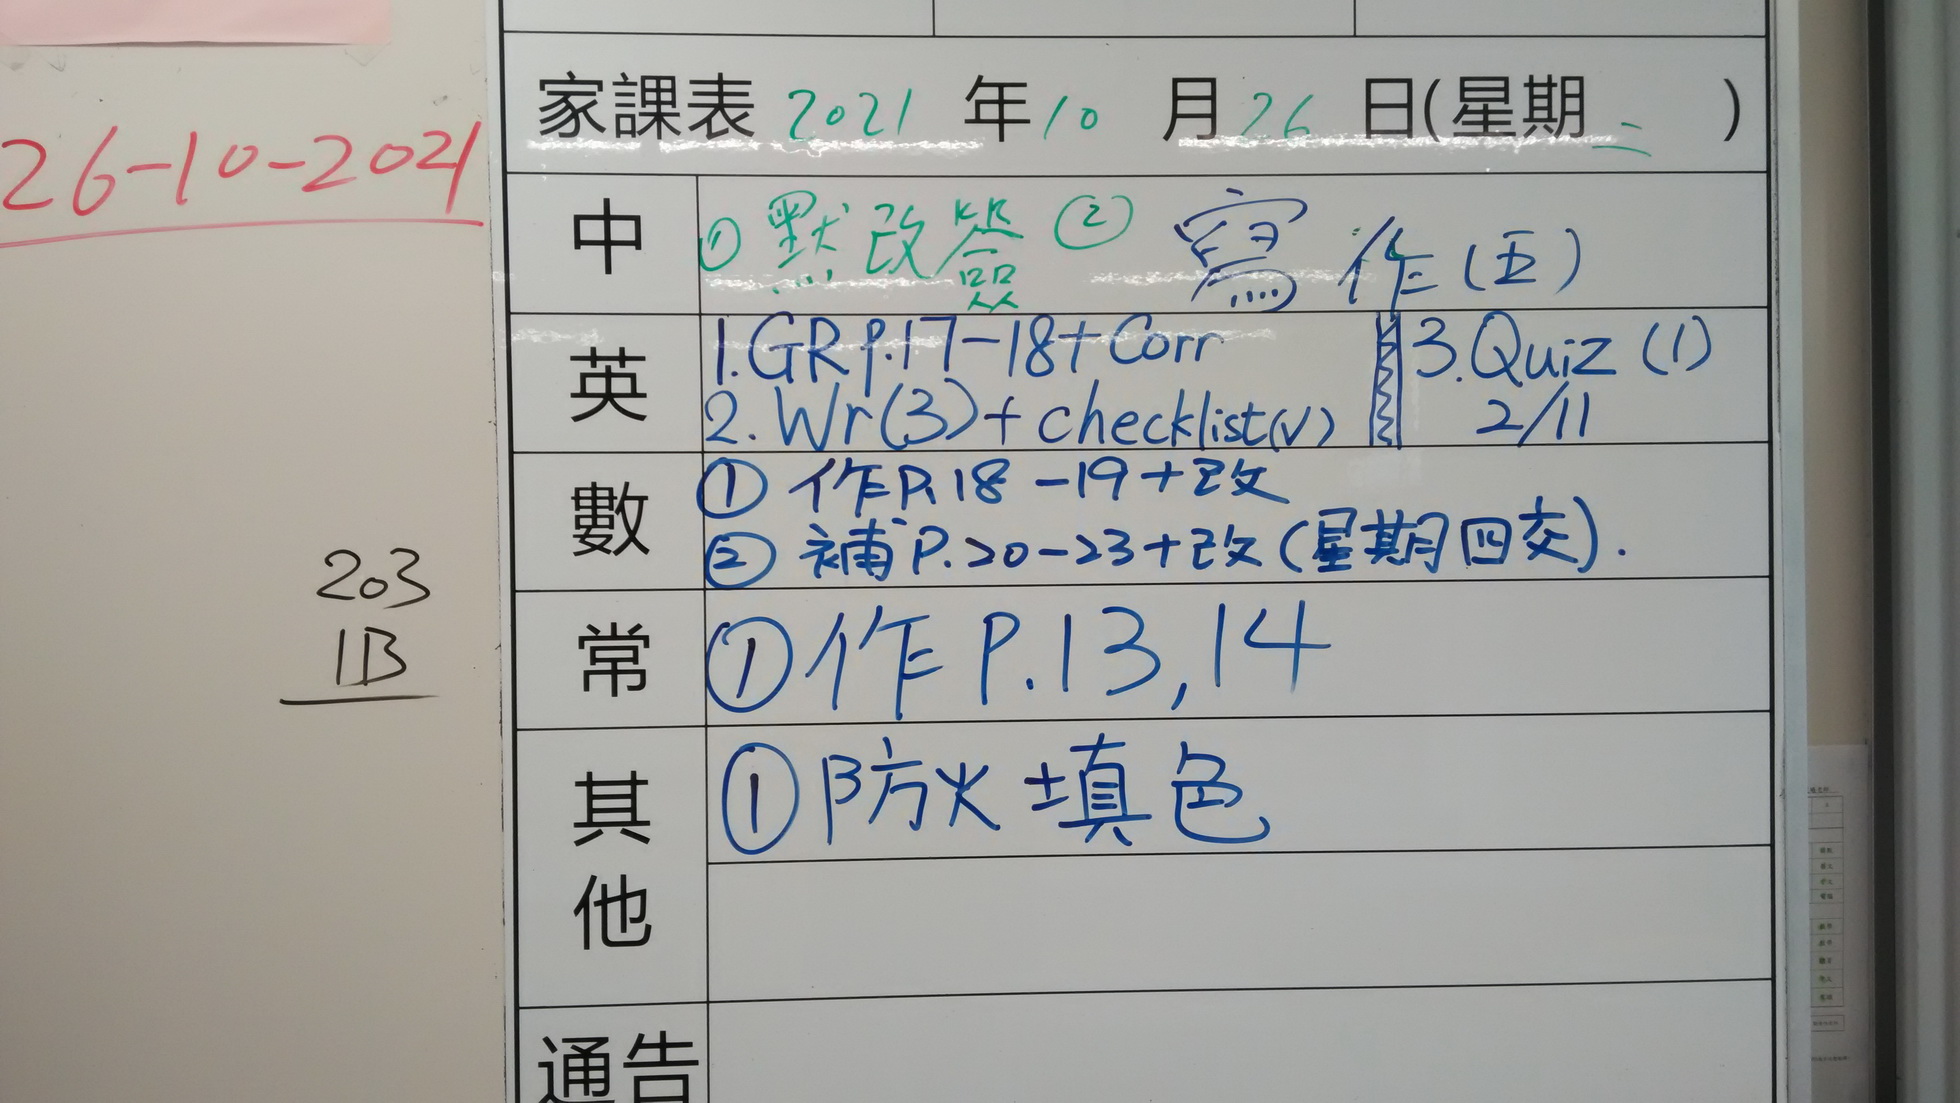 26-10-2021
203
1B
家課表 2021 年 10 月 26 日(星期 二 )
中 ① 默改簽 ② 寫作(五)
英 1. GR p.17-18+Corr 3. Quiz (1)
2. Wr(3)+checklist(√) 2/11
數 ① 作P.18-19+改
② 補P.20-23+改(星期四交).
常 ①作 P.13,14
其他 ①防火填色
通告